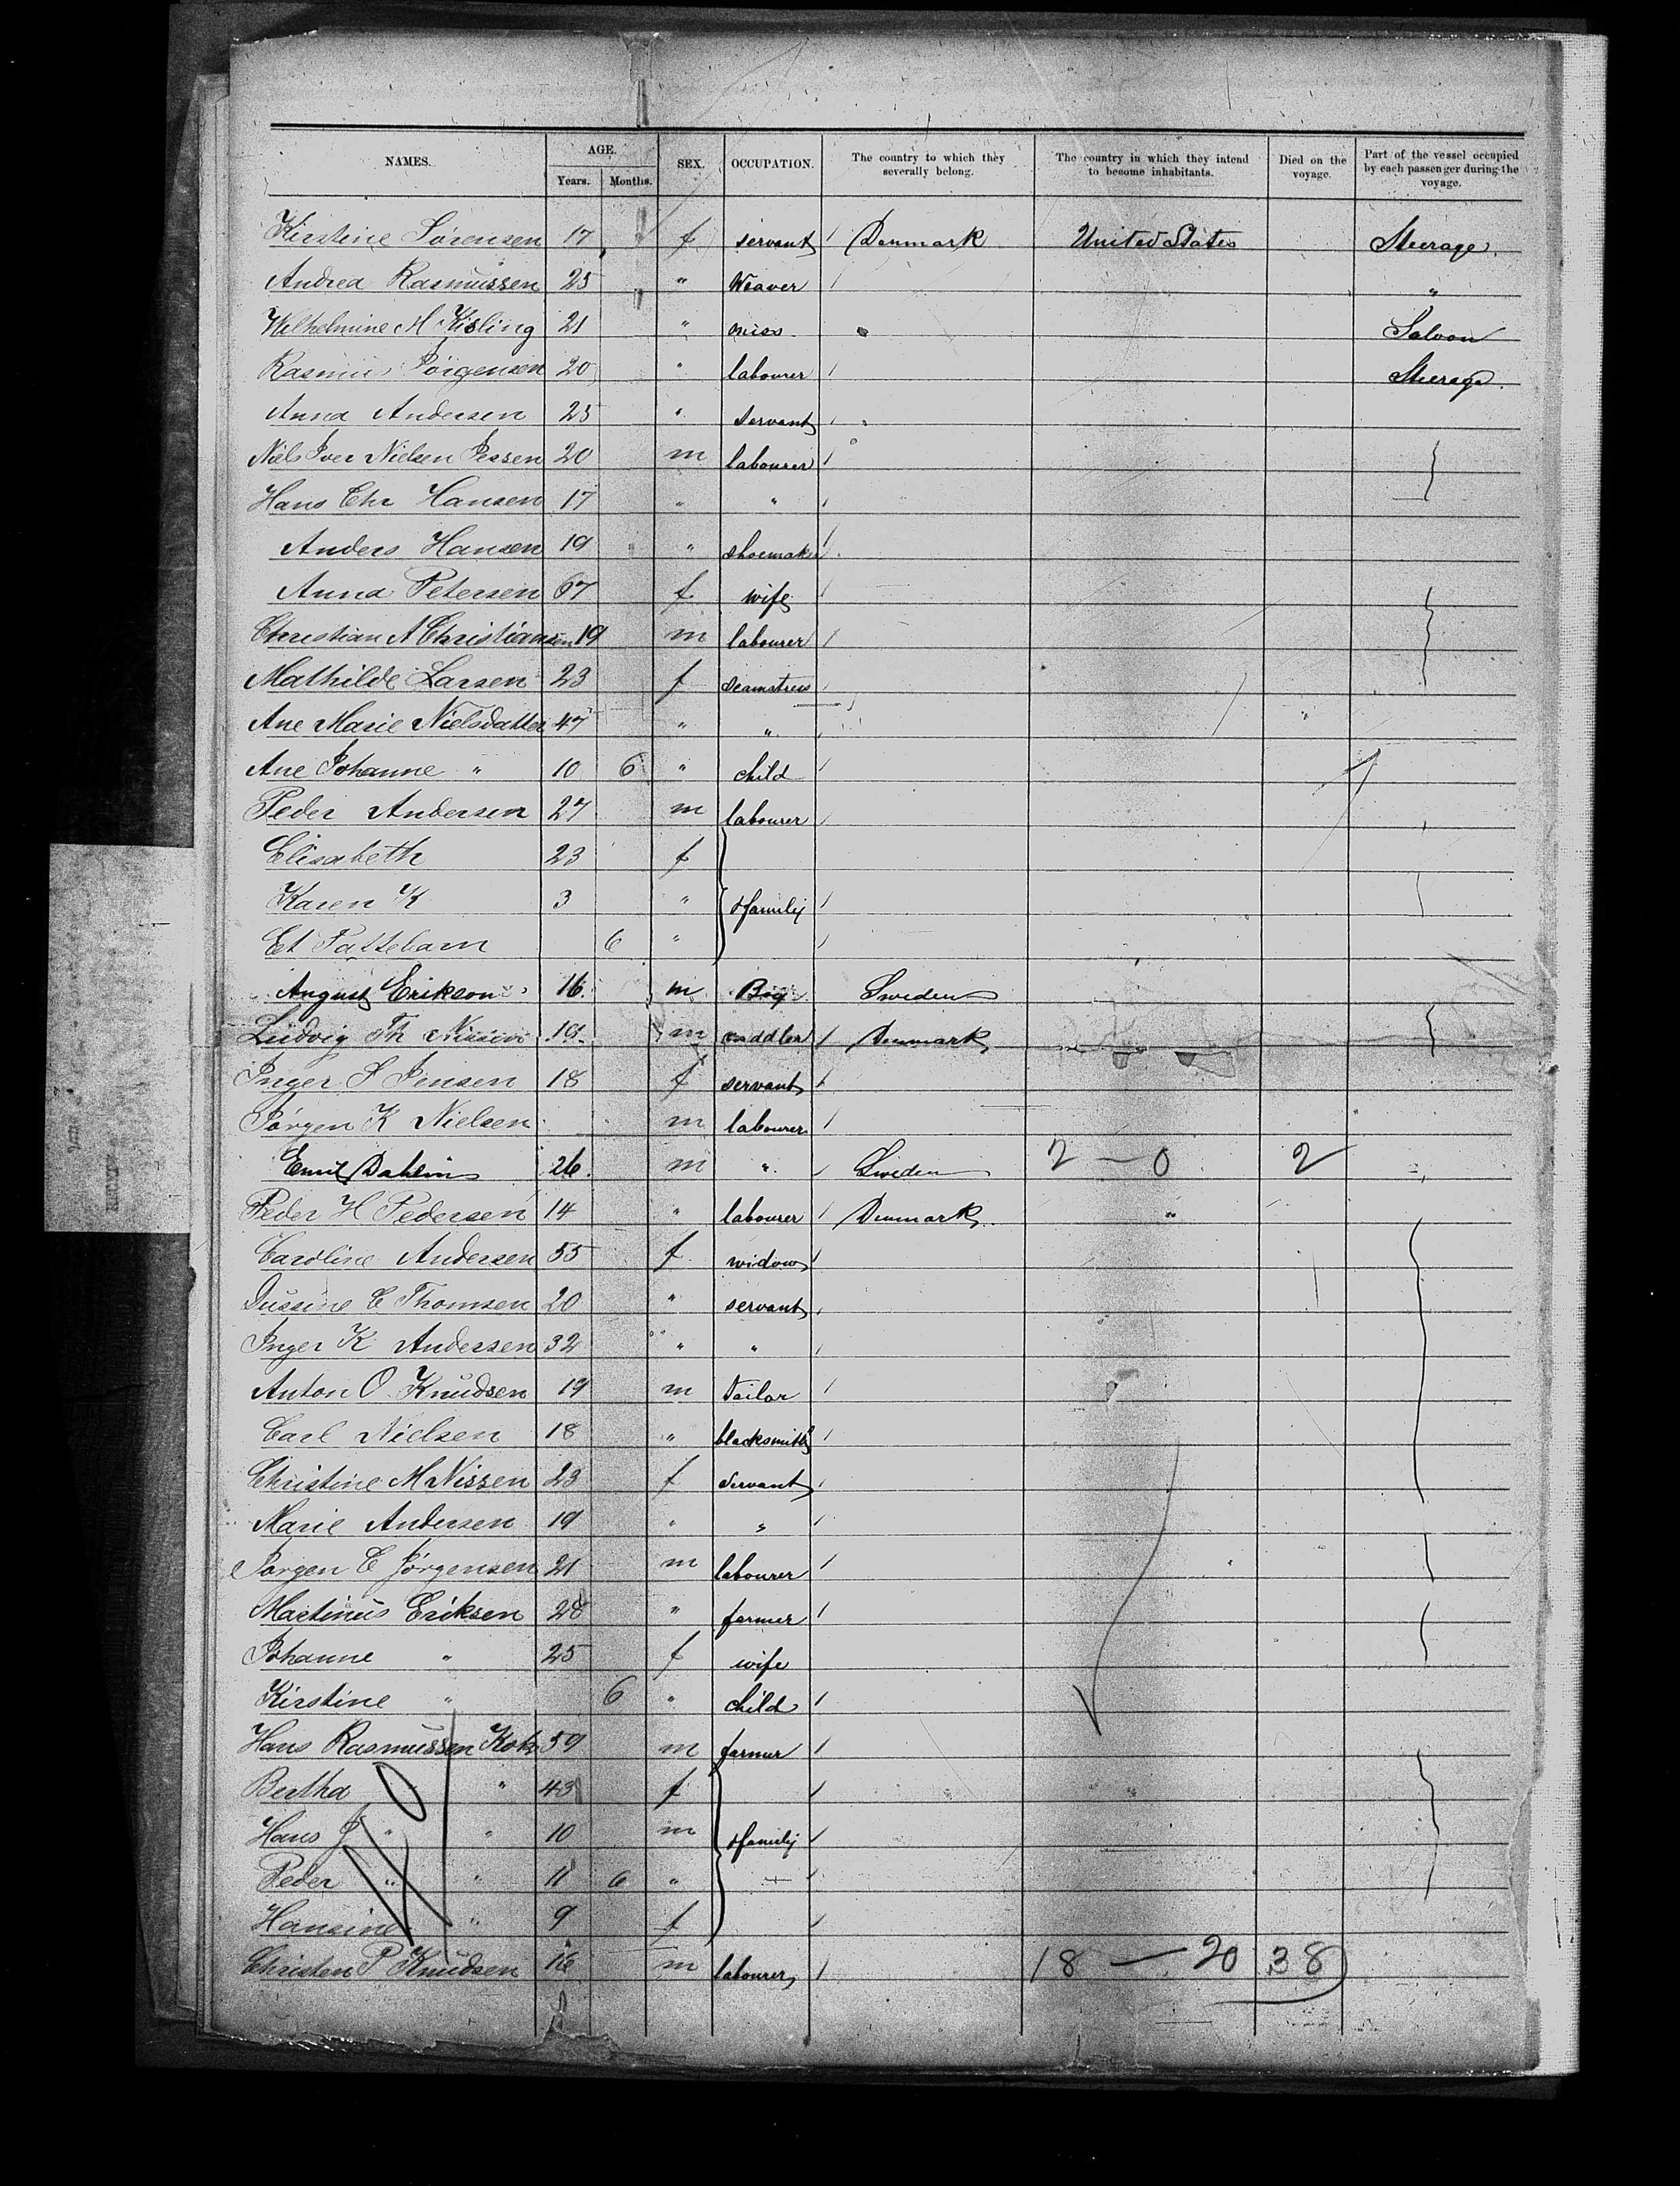 NAMES. AGE. SEX. OCCUPATION. The country to which they severally belong. The country in which they intend to become inhabitants. Died on the voyage. Part of the vessel occupied by each passenger during the voyage.
Years. Months.
Kirstine Sørensen 17 f servant Denmark United States Steerage
Andrea Rasmussen 25 " Weaver "
Wilhelmine M Kisling 21 " miss Saloon
Rasmus Jörgensen 20 " labourer Steerage
Anna Andersen 25 " servant
Niels Iver Nielsen Jessen 20 m labourer
Hans Chr Hansen 17 " "
Anders Hansen 19 " shoemaker
Anna Petersen 67 f wife
Christian A Christiansen 19 m labourer
Mathilde Larsen 23 f seamstress
Ane Marie Nielsdatter 47 " "
Ane Johanne " 10 6 " child
Peder Andersen 27 m labourer
Elisabeth 23 f
Karen K 3 " family
Et Pattebarn 6 "
August Erikson 16 m Boy Sweden
Ludvig Th 19 m saddler Denmark
Inger S Jensen 18 f servant
Jörgen K Nielsen m labourer
Emil Dahlin 26 m " Sweden 2 — 0 2
Peder H Pedersen 14 " labourer Denmark
Caroline Andersen 55 f widow
C Thomsen 20 " servant
Inger K Andersen 32 " "
Anton O Knudsen 19 m tailor
Carl Nielsen 18 " blacksmith
Christine M Nissen 23 f servant
Marie Andersen 19 " "
Jörgen C Jörgensen 21 m labourer
Martinus Eriksen 28 " farmer
Johanne " 25 f wife
Kirstine " 6 " child
Hans Rasmussen 59 m farmer
Bertha " 43 f
Hans J " " 10 m family
Peder " " 11 6 "
Hansine " 9 f
Christen P Knudsen 16 m labourer 18 — 20 38